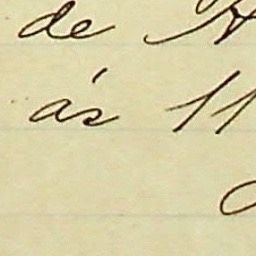 de A
ás 11